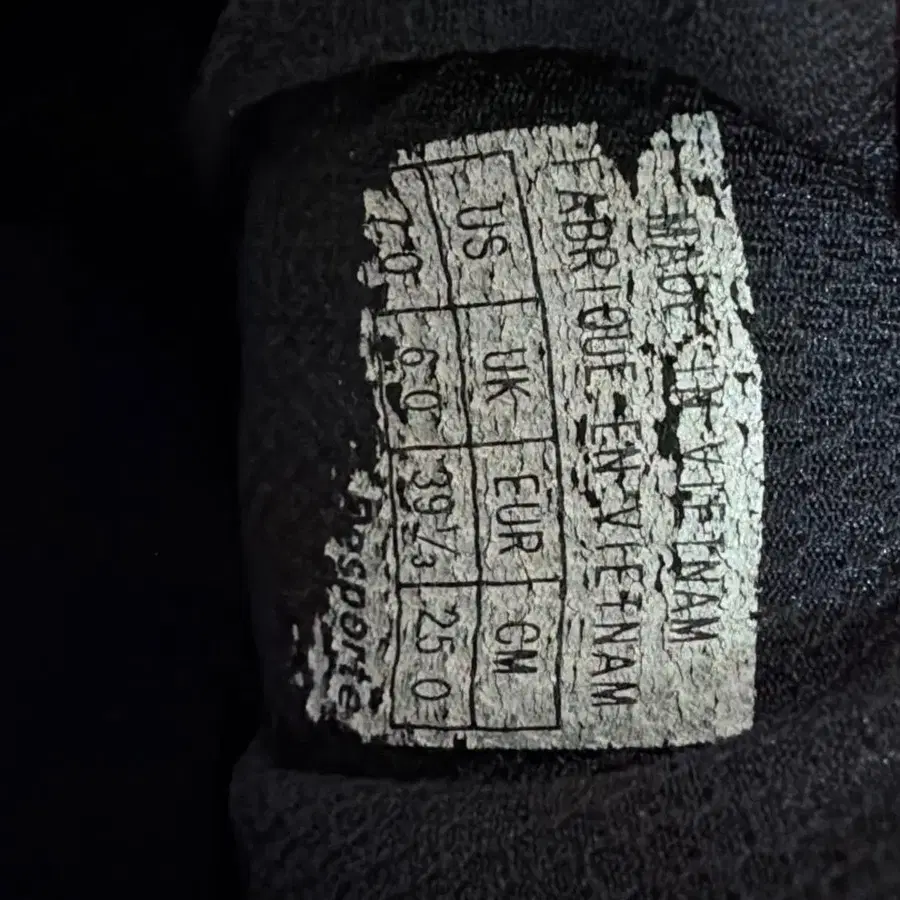 MADE IN VIETNAM
ABRIQUE EN VIETNAM
US UK EUR CM
7.0 6.0 39⅓ 25.0
Desporte